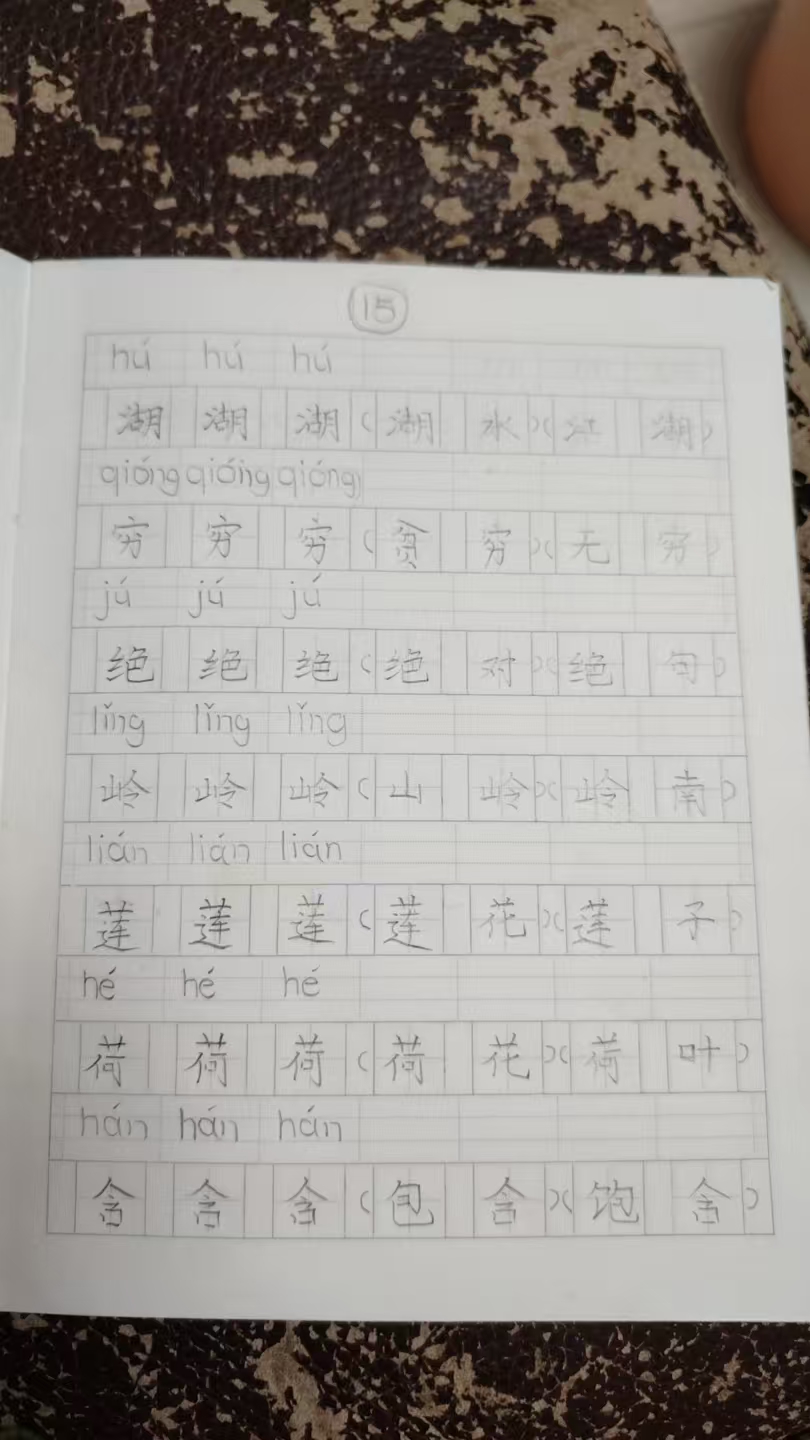 15
hú hú hú
湖 湖 湖 (湖 水)(江 湖)
qióng qióng qióng
穷 穷 穷 (贫 穷)(无 穷)
jú jú jú
绝 绝 绝 (绝 对)(绝 句)
lǐng lǐng lǐng
岭 岭 岭 (山 岭)(岭 南)
lián lián lián
莲 莲 莲 (莲 花)(莲 子)
hé hé hé
荷 荷 荷 (荷 花)(荷 叶)
hán hán hán
含 含 含 (包 含)(饱 含)